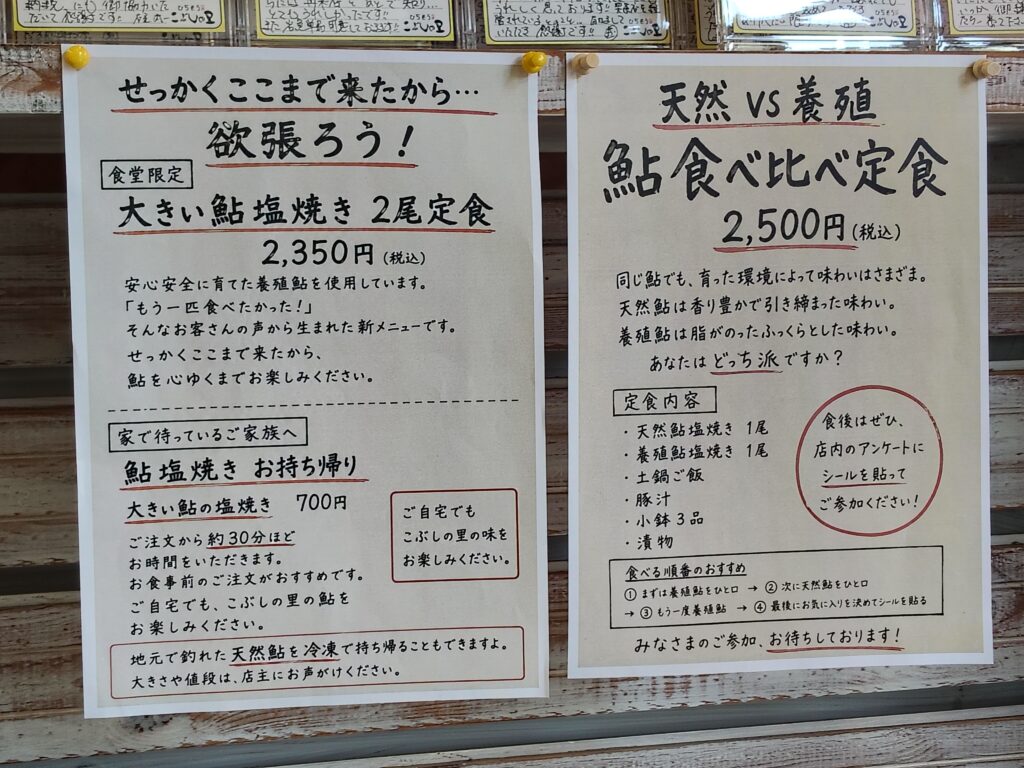 せっかくここまで来たから…
欲張ろう!
食堂限定
大きい鮎塩焼き 2尾定食
2,350円(税込)
安心安全に育てた養殖鮎を使用しています。
「もう一匹食べたかった!」
そんなお客さんの声から生まれた新メニューです。
せっかくここまで来たから、
鮎を心ゆくまでお楽しみください。
家で待っているご家族へ
鮎塩焼き お持ち帰り
大きい鮎の塩焼き 700円
ご注文から約30分ほど
お時間をいただきます。
お食事前のご注文がおすすめです。
ご自宅でも、こぶしの里の鮎を
お楽しみください。
ご自宅でも
こぶしの里の味を
お楽しみください。
地元で釣れた天然鮎を冷凍で持ち帰ることもできますよ。
大きさや値段は、店主にお声がけください。
天然 VS 養殖
鮎食べ比べ定食
2,500円(税込)
同じ鮎でも、育った環境によって味わいはさまざま。
天然鮎は香り豊かで引き締まった味わい。
養殖鮎は脂がのったふっくらとした味わい。
あなたはどっち派ですか?
定食内容
・天然鮎塩焼き 1尾
・養殖鮎塩焼き 1尾
・土鍋ご飯
・豚汁
・小鉢3品
・漬物
食後はぜひ、
店内のアンケートに
シールを貼って
ご参加ください!
食べる順番のおすすめ
① まずは養殖鮎をひと口 → ② 次に天然鮎をひと口
→ ③ もう一度養殖鮎 → ④ 最後にお気に入りを決めてシールを貼る
みなさまのご参加、お待ちしております!